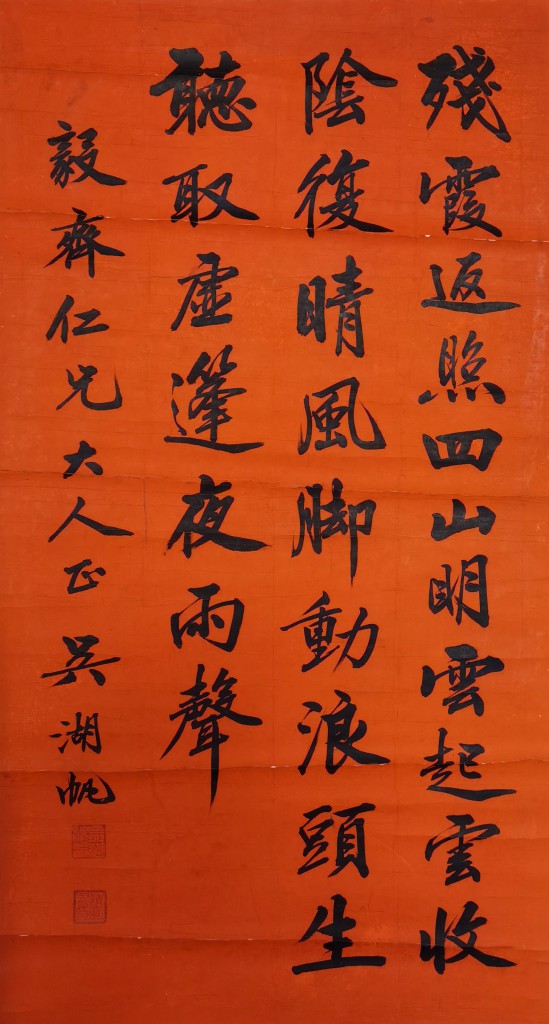 殘霞返照四山明雲起雲收
陰復晴風脚動浪頭生
聽取虛篷夜雨聲
毅齊仁兄大人正 吳湖帆